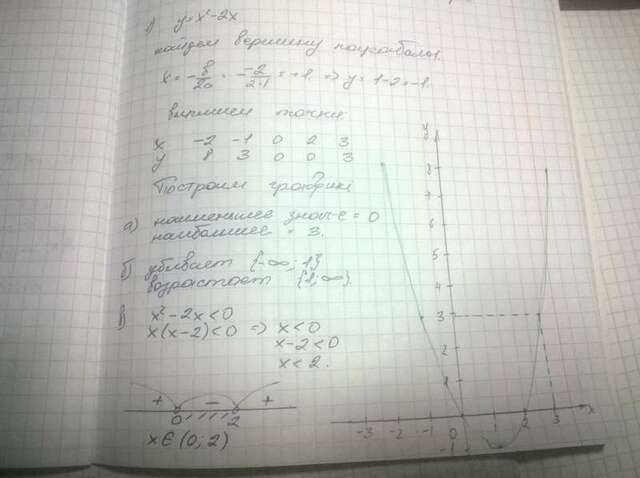 1) y=x²-2x
найдем вершину параболы:
x = -b/2a = - -2/2·1 = 1 ⇒ y = 1-2=-1
возьмем точки
x -2 -1 0 2 3
y 8 3 0 0 3
Построим график
а) наименьшее знач-е = 0
наибольшее = 3.
б) убывает (-∞; 1]
возрастает [1; ∞).
в) x²-2x<0
x(x-2)<0 ⇒ x<0
x-2<0
x<2.
+ - +
0 2
x∈(0,2)
y
8
7
6
5
4
3
2
1
-3 -2 -1 0 1 2 3 x
-1